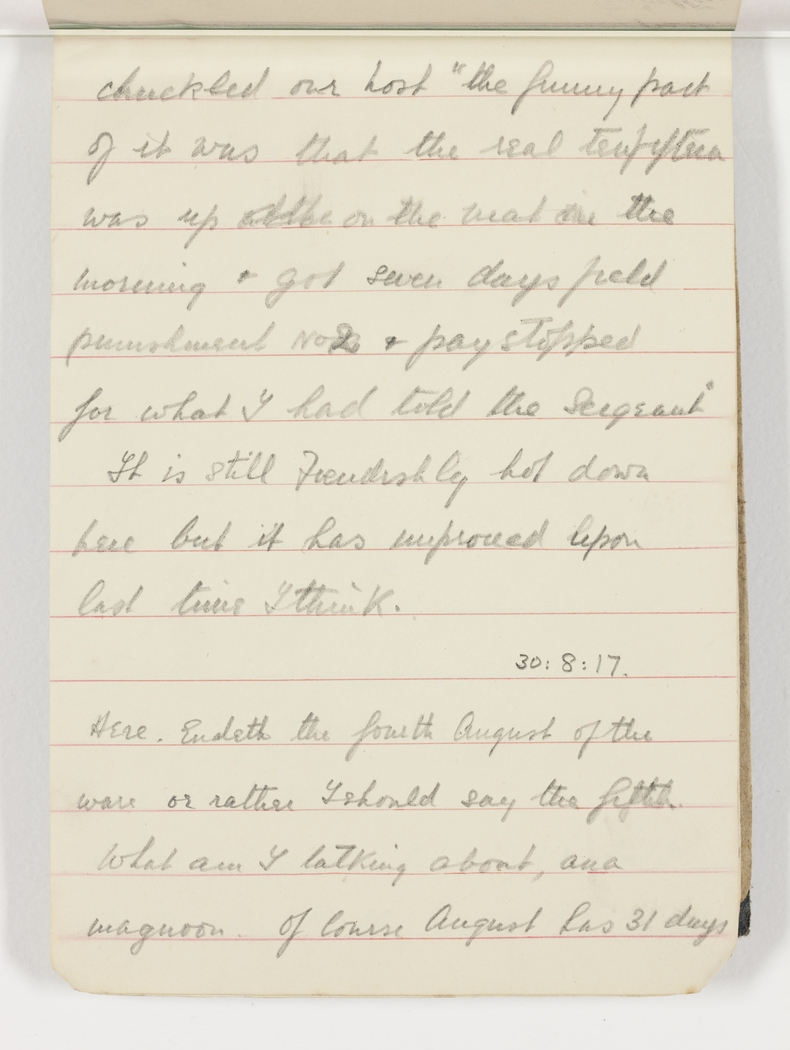 chuckled our host "the funny part
of it was that the real tenfifteen
was up on the mat in the
morning + got seven days field
punishment No 2 + pay stopped
for what I had told the Sergeant"
It is still Fiendishly hot down
here but it has improved upon
last time I think.
30:8:17.
Here. Endeth the fourth August of the
ware or rather I should say the fifth.
What am I talking about, ana
magnoon. Of course August has 31 days